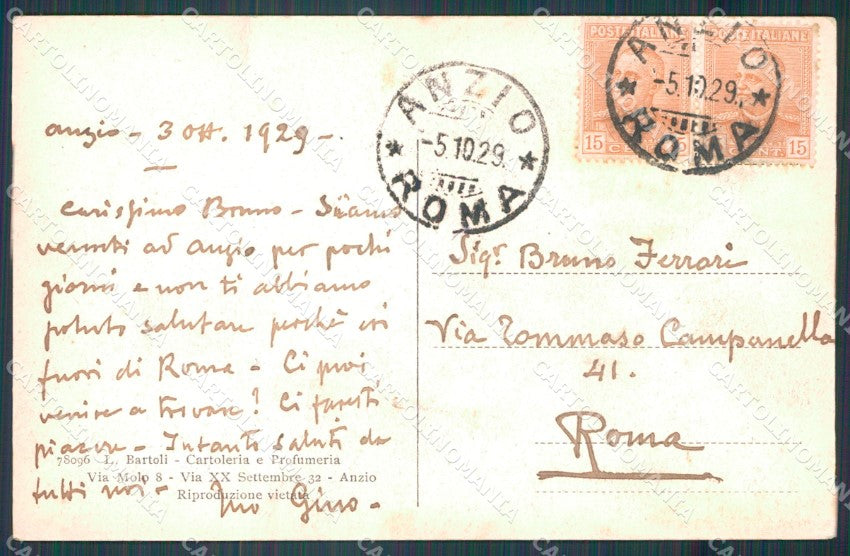 Anzio - 3 ott. 1929 -
Carissimo Bruno - Siamo
venuti ad Anzio per pochi
giorni e non ti abbiamo
potuto salutare perchè eri
fuori di Roma - Ci puoi
venire a trovare? Ci faresti
piacere - Intanto saluti da
tutti noi - Tuo Gino -
78096 L. Bartoli - Cartoleria e Profumeria
Via Molo 8 - Via XX Settembre 32 - Anzio
Riproduzione vietata
ANZIO
-5.10.29.
ROMA
POSTE ITALIANE
POSTE ITALIANE
ANZIO
-5.10.29.
ROMA
15 CENT. 15
Sigr Bruno Ferrari
Via Tommaso Campanella
41.
Roma
CARTOLINOMANIA